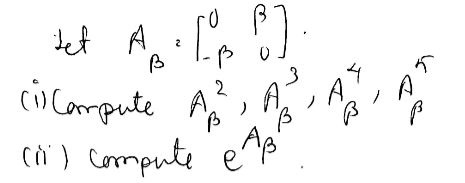 Let A_β = [0 β
-β 0].
(i) Compute A_β^2, A_β^3, A_β^4, A_β^5
(ii) compute e^{A_β}.